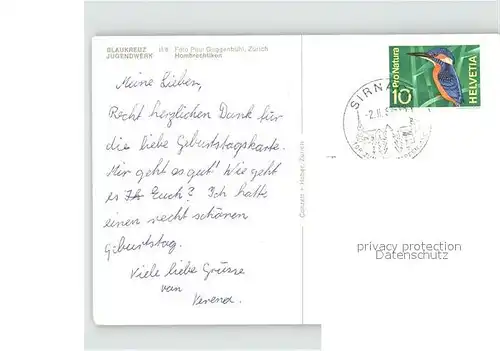 BLAUKREUZ Foto Paul Guggenbühl, Zürich
JUGENDWERK Hombrechtikon
Meine Lieben,
Recht herzlichen Dank für
die liebe Geburtstagskarte.
Mir geht es gut! Wie geht
es Euch? Ich hatte
einen recht schönen
Geburtstag.
Viele liebe Grüsse
von
Verena.
Conzett + Huber Zürich
Pro Natura
10
HELVETIA
SIRNA
-2.II.
privacy protection
Datenschutz